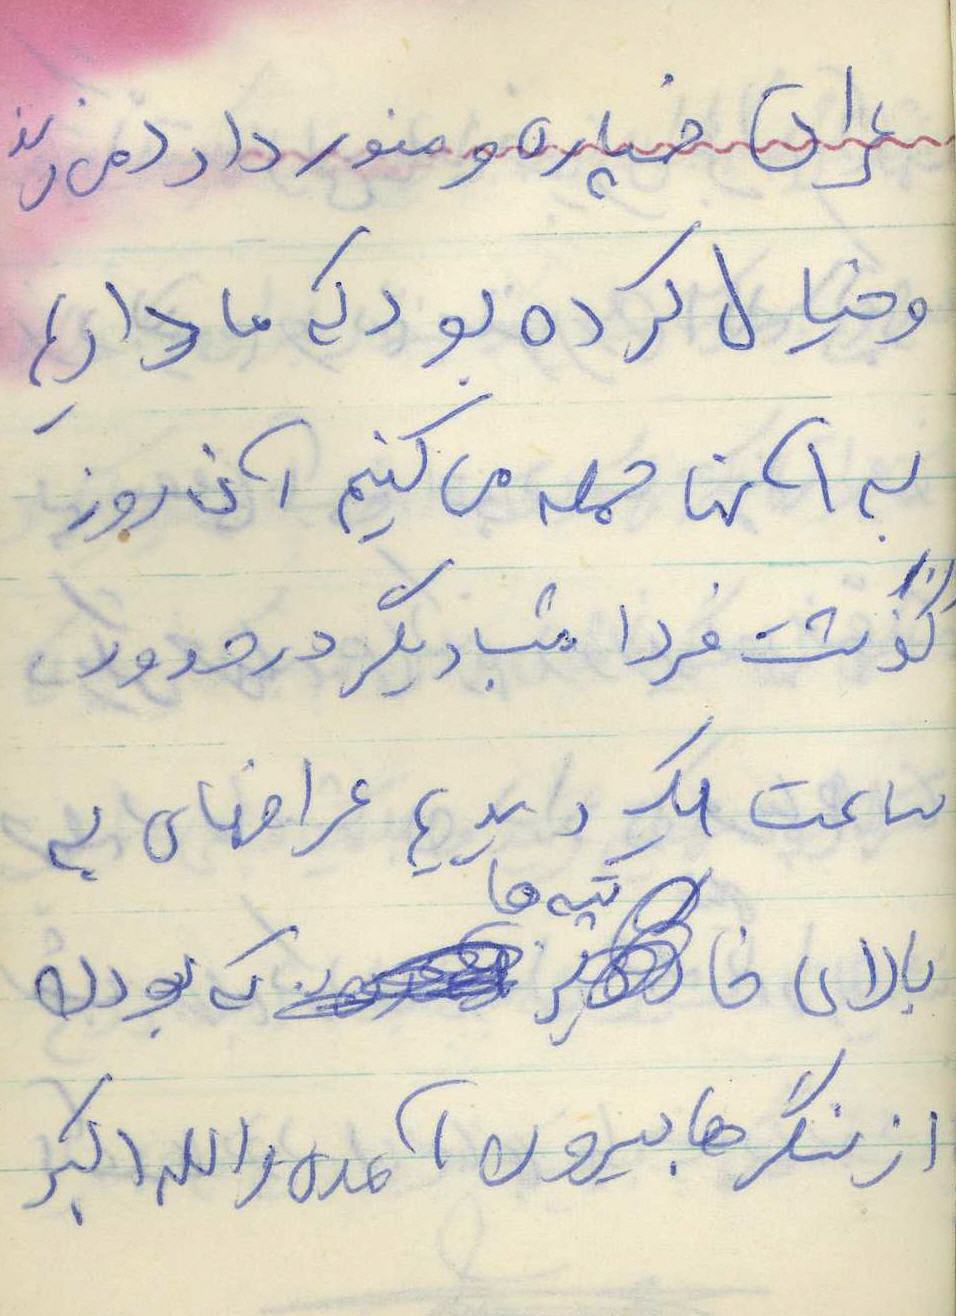 عراق خمپاره و منور دارد می‌ریزد
و خیال کرده بود که ما داریم
به آنها حمله می کنیم آن روز
گذشت فردا شب دیگر در حدود
ساعت یک دیدیم عراقیهای به
بالای تپه ها که بودن
از سنگر ها بیرون آمده و الله اکبر